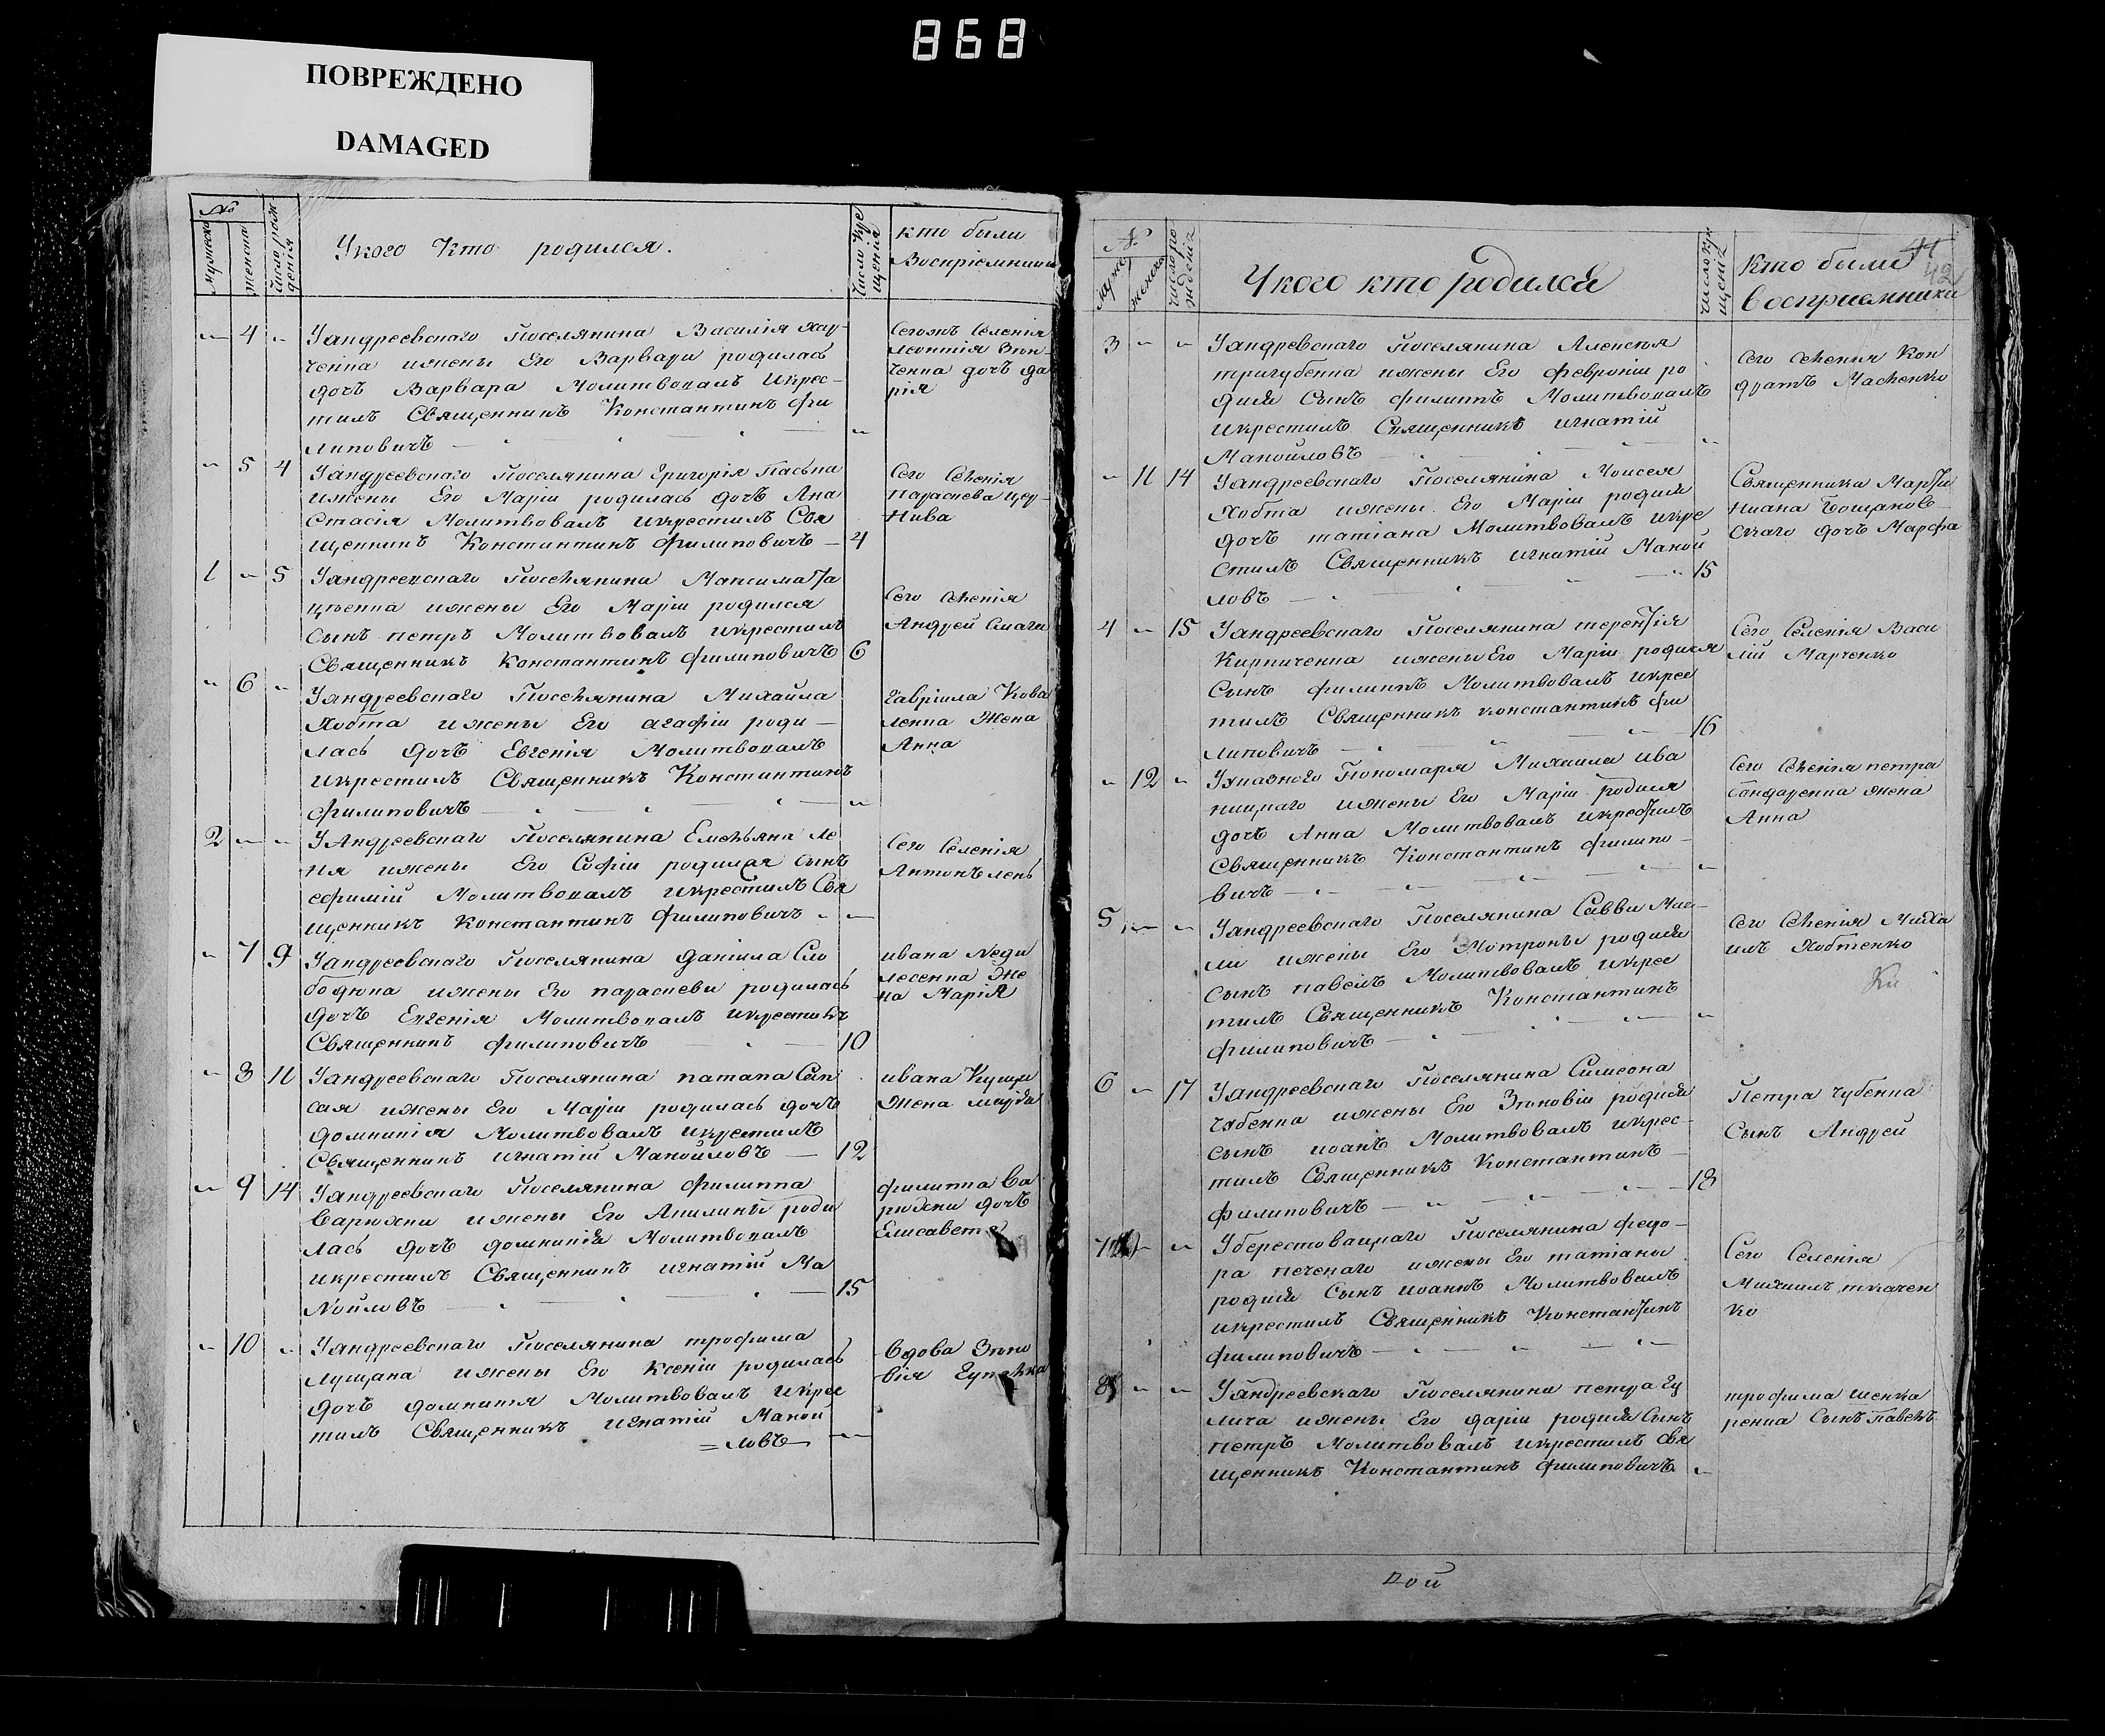 868
ПОВРЕЖДЕНО
DAMAGED
№
мужеска
женска
число рож
денія
Укого Кто родился.
Число Кре
щенія
кто были
Воспріемники
— 4 — Уандреевскаго Поселянина Василія
ченка ижены Его Варвари родилась
дочь Варвара Молитвовалъ Икрес-
тилъ Священникъ Константинъ Фи
липовичъ —
Сегожъ Селенія
Леонтія Зѣн-
ченка дочь Да
рія
— 5 4 Уандреевскаго Поселянина Григорія Паська
ижены Его Маріи родилась дочь Ана
стасія Молитвовалъ икрестилъ Свя
щенникъ Константинъ Филиповичъ — 4
Сего Селенія
Параскева
1 — 5 Уандреевскаго Поселянина Максима
ижены Его Маріи родился
сынъ петръ Молитвовалъ икрестилъ
Священникъ Константинъ Филиповичъ 6
Сего Селенія
Андрей
— 6 — Уандреевскаго Поселянина Михаила
Хобта ижены Его агафіи роди —
лась дочь Евгенія Молитвовалъ
икрестилъ Священникъ Константинъ
Филиповичъ —
Гавріила Кова
ленка Жена
Анна
2 — — УАндреевскаго Поселянина Емельяна Ле
ня ижены Его Софіи родился сынъ
ефимій Молитвовалъ икрестилъ Свя
щенникъ Константинъ Филиповичъ —
Сего Селенія
Антонъ лень
— 7 9 Уандреевскаго Поселянина даніила Сло
бодюка ижены Его параскеви родилась
дочь Евгенія Молитвовалъ икрестилъ
Священникъ Филиповичъ — 10
ивана
Же
на Марія
— 8 11 Уандреевскаго Поселянина патапа
ижены Его Маріи родилась дочь
домникія Молитвовалъ икрестилъ
Священникъ игнатій Манойловъ — 12
ивана
Жена
— 9 14 Уандреевскаго Поселянина филиппа
Варюхи ижены Его Акилины роди
лась дочь домникія Молитвовалъ
икрестилъ Священникъ игнатій Ма
нойловъ — 15
филиппа Ва
рюхи дочь
Елисавета
— 10 — Уандреевскаго Поселянина трофима
Лущана ижены Его Ксеніи родилась
дочь домникія Молитвовалъ Икрес
тилъ Священникъ игнатій Маной
= ловъ —
вдова Зѣно
вія
№
мужес
женска
число ро
жденія
Укого кто родился
число кре
щенія
кто были
воспріемники
42
3 — — Уандревскаго Поселянина Алексѣя
тригубенка ижены Его Февроніи ро
дился Сынъ филиппъ Молитвовалъ
икрестилъ Священникъ игнатій
Манойловъ —
Сего селенія Кон
дратъ Масленко
— 11 14 Уандреевскаго Поселянина Моисея
Хобта ижены Его Маріи родился
дочь татіана Молитвовалъ икре
стилъ Священникъ игнатій Маной
ловъ — 15
Священника Марти
ніана Бощанов
скаго дочь Марфа
4 — 15 Уандреевскаго Поселянина терентія
Кириченка ижены Его Маріи родился
Сынъ филипъ Молитвовалъ икрес
тилъ Священникъ константинъ фи
липовичъ — 16
Сего Селенія Васи
лій Марченко
— 12 — Пономаря Михаила ива
ницкаго ижены Его Маріи родился
дочь Анна Молитвовалъ икрестилъ
Священникъ Константинъ филипо —
вичъ —
Сего Селенія петра
бондаренка жена
Анна
5 — — Уандреевскаго Поселянина Саввы
ижены Его Мотроны родился
Сынъ павелъ Молитвовалъ икрес
тилъ Священникъ Константинъ
филиповичъ —
Сего Селенія Миха
илъ Хобтенко
6 — 17 Уандреевскаго Поселянина Симеона
ижены Его Зѣновіи родился
сынъ иоанъ Молитвовалъ икрес-
тилъ Священникъ Константинъ —
филиповичъ — 18
Петра Чубенка
Сынъ Андрей
7 — — Уберестовацкаго Поселянина федо —
ра печенаго ижены Его татіаны
родился Сынъ иоаннъ Молитвовалъ
икрестилъ Священникъ Константинъ
филиповичъ —
Сего Селенія
Михаилъ ткачен
ко
8 — — Уандреевскаго Поселянина петра Гу
лича ижены Его даріи родился Сынъ
петръ Молитвовалъ икрестилъ Свя
щенникъ Константинъ Филиповичъ —
трофима шенка
ренка Сынъ Павелъ
кой